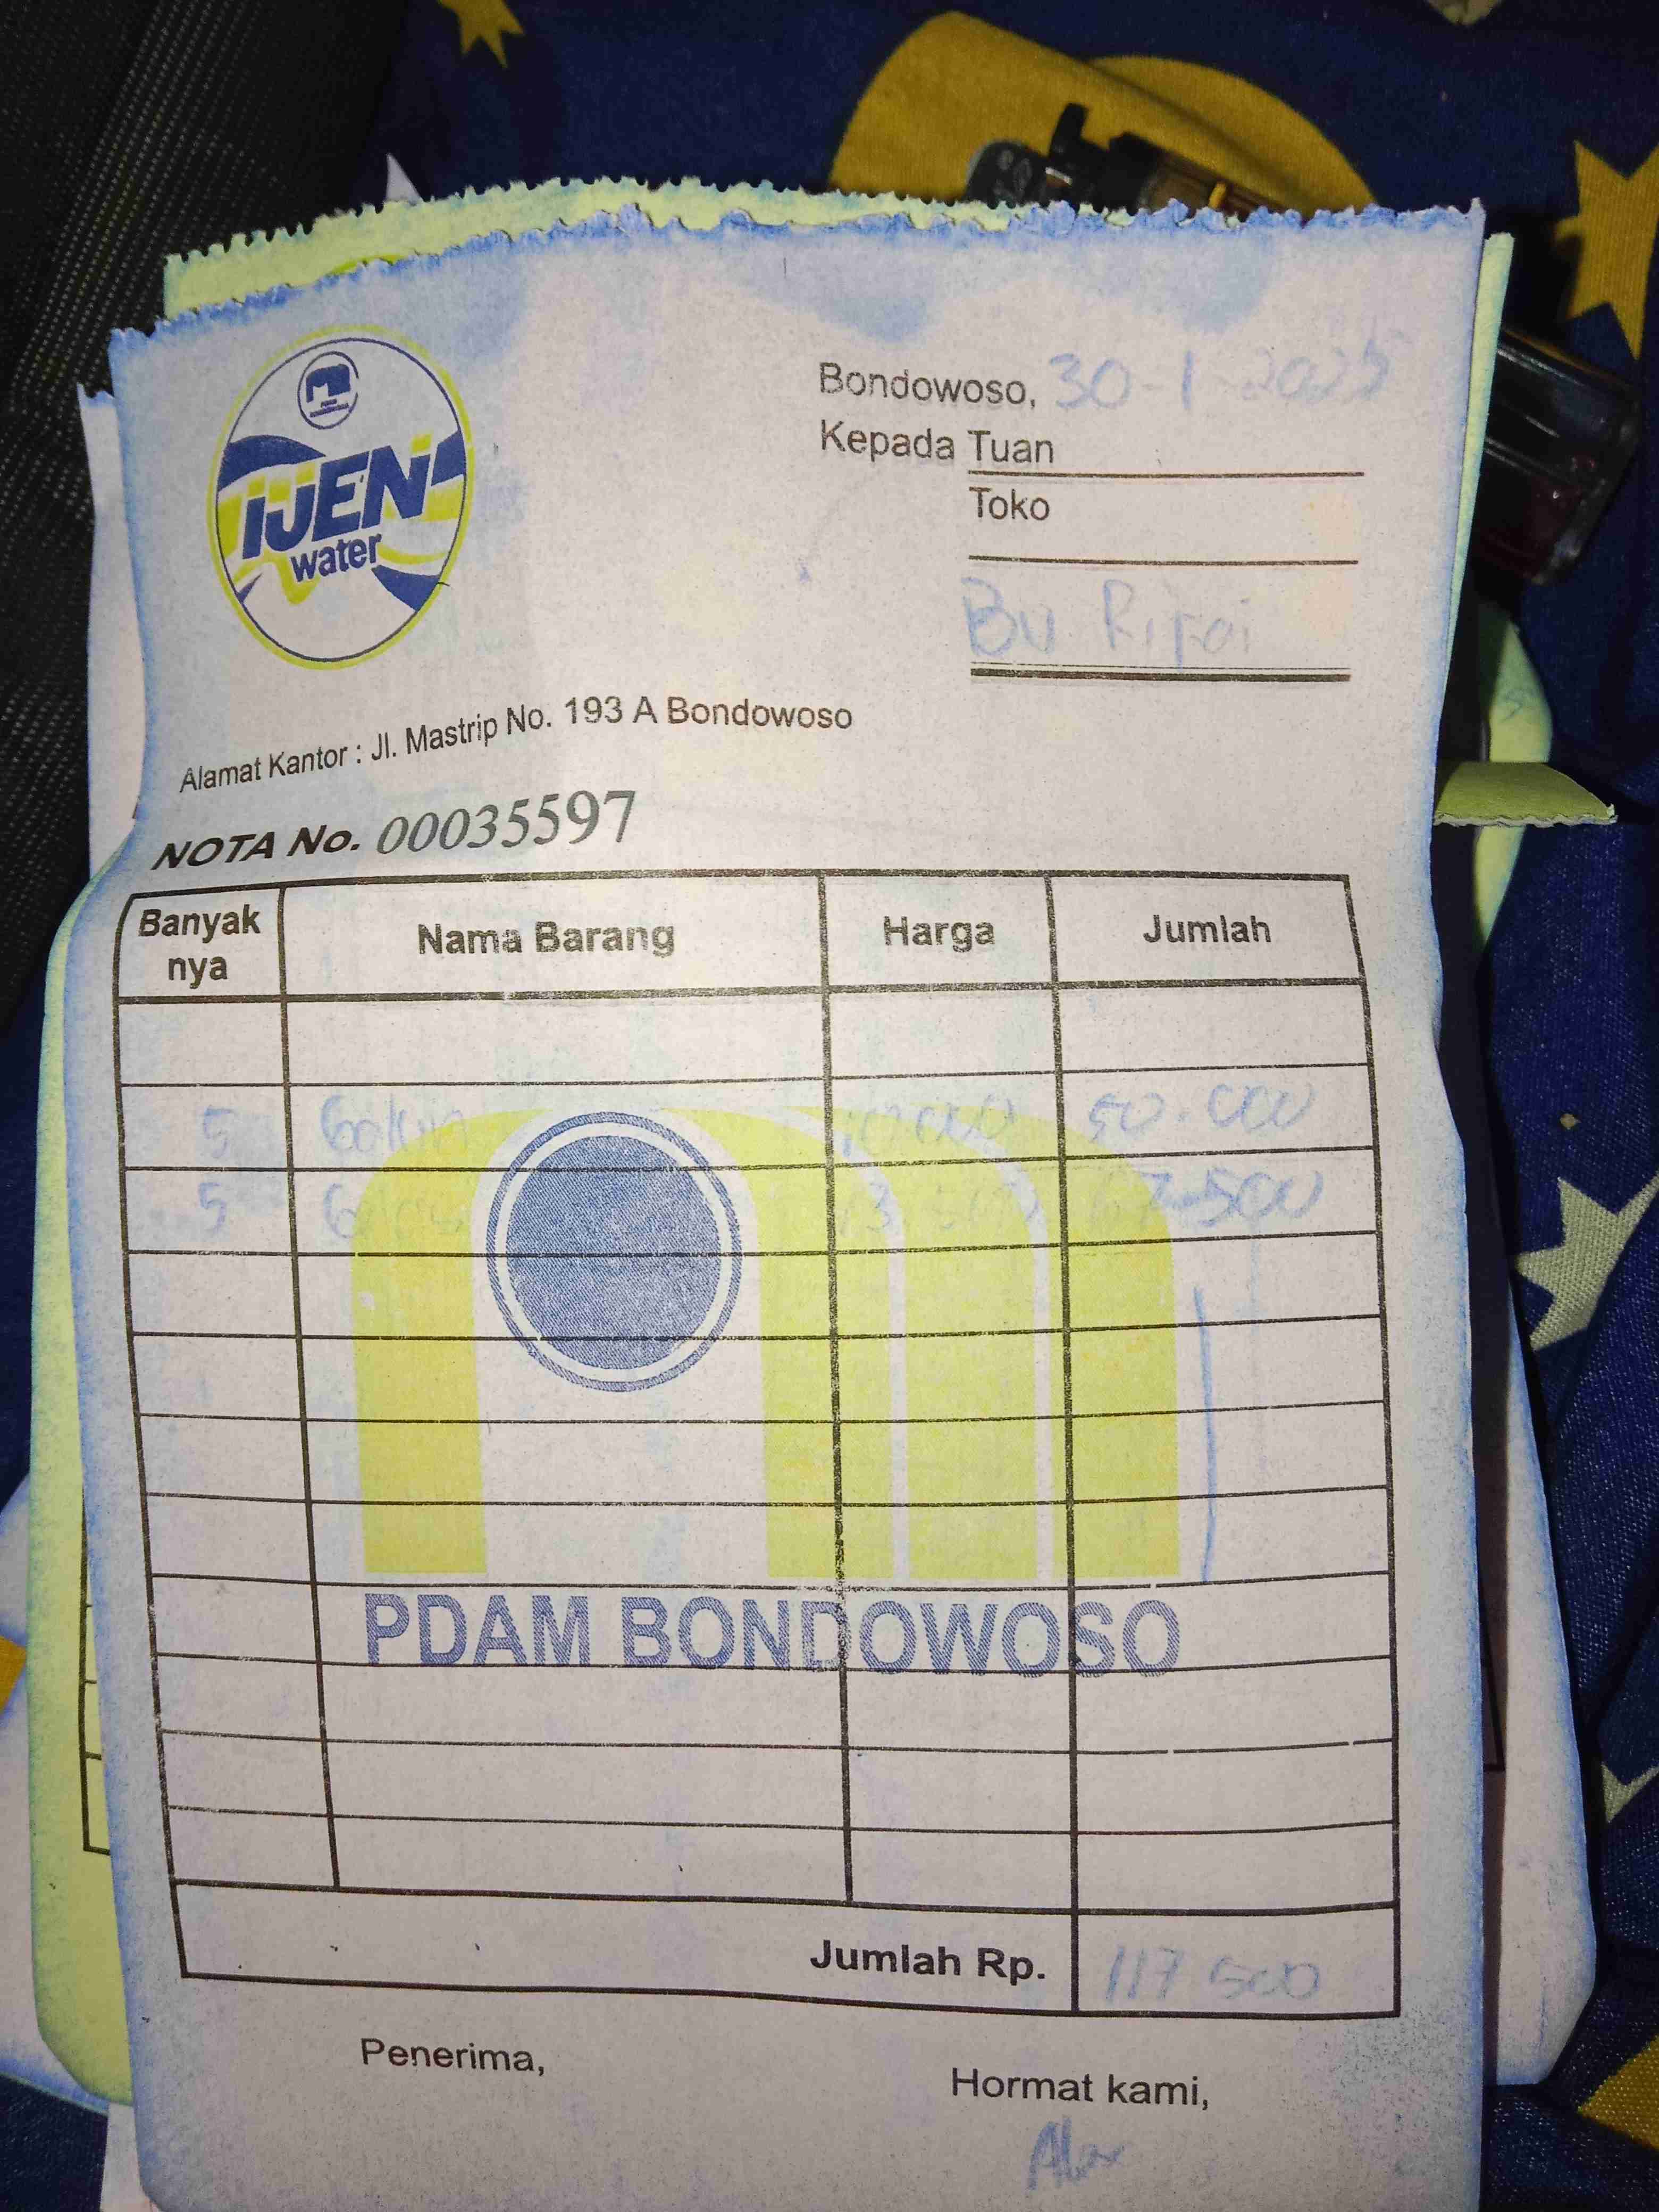 IJEN
water
Bondowoso, 30-1-2025
Kepada Tuan
Toko
Bu Rifai
Alamat Kantor : Jl. Mastrip No. 193 A Bondowoso
NOTA No. 00035597
Banyak nya Nama Barang Harga Jumlah
5 Galon 10.000 50.000
5 13.500 67.500
PDAM BONDOWOSO
Jumlah Rp. 117 500
Penerima,
Hormat kami,